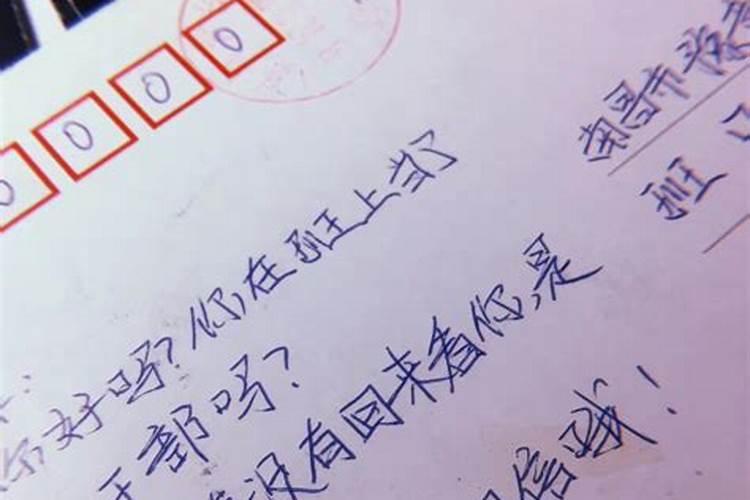 0 0 0 0
南昌市
班
你好吗?你在班上当了
干部吗?
没有回来看你,是
回信哦!